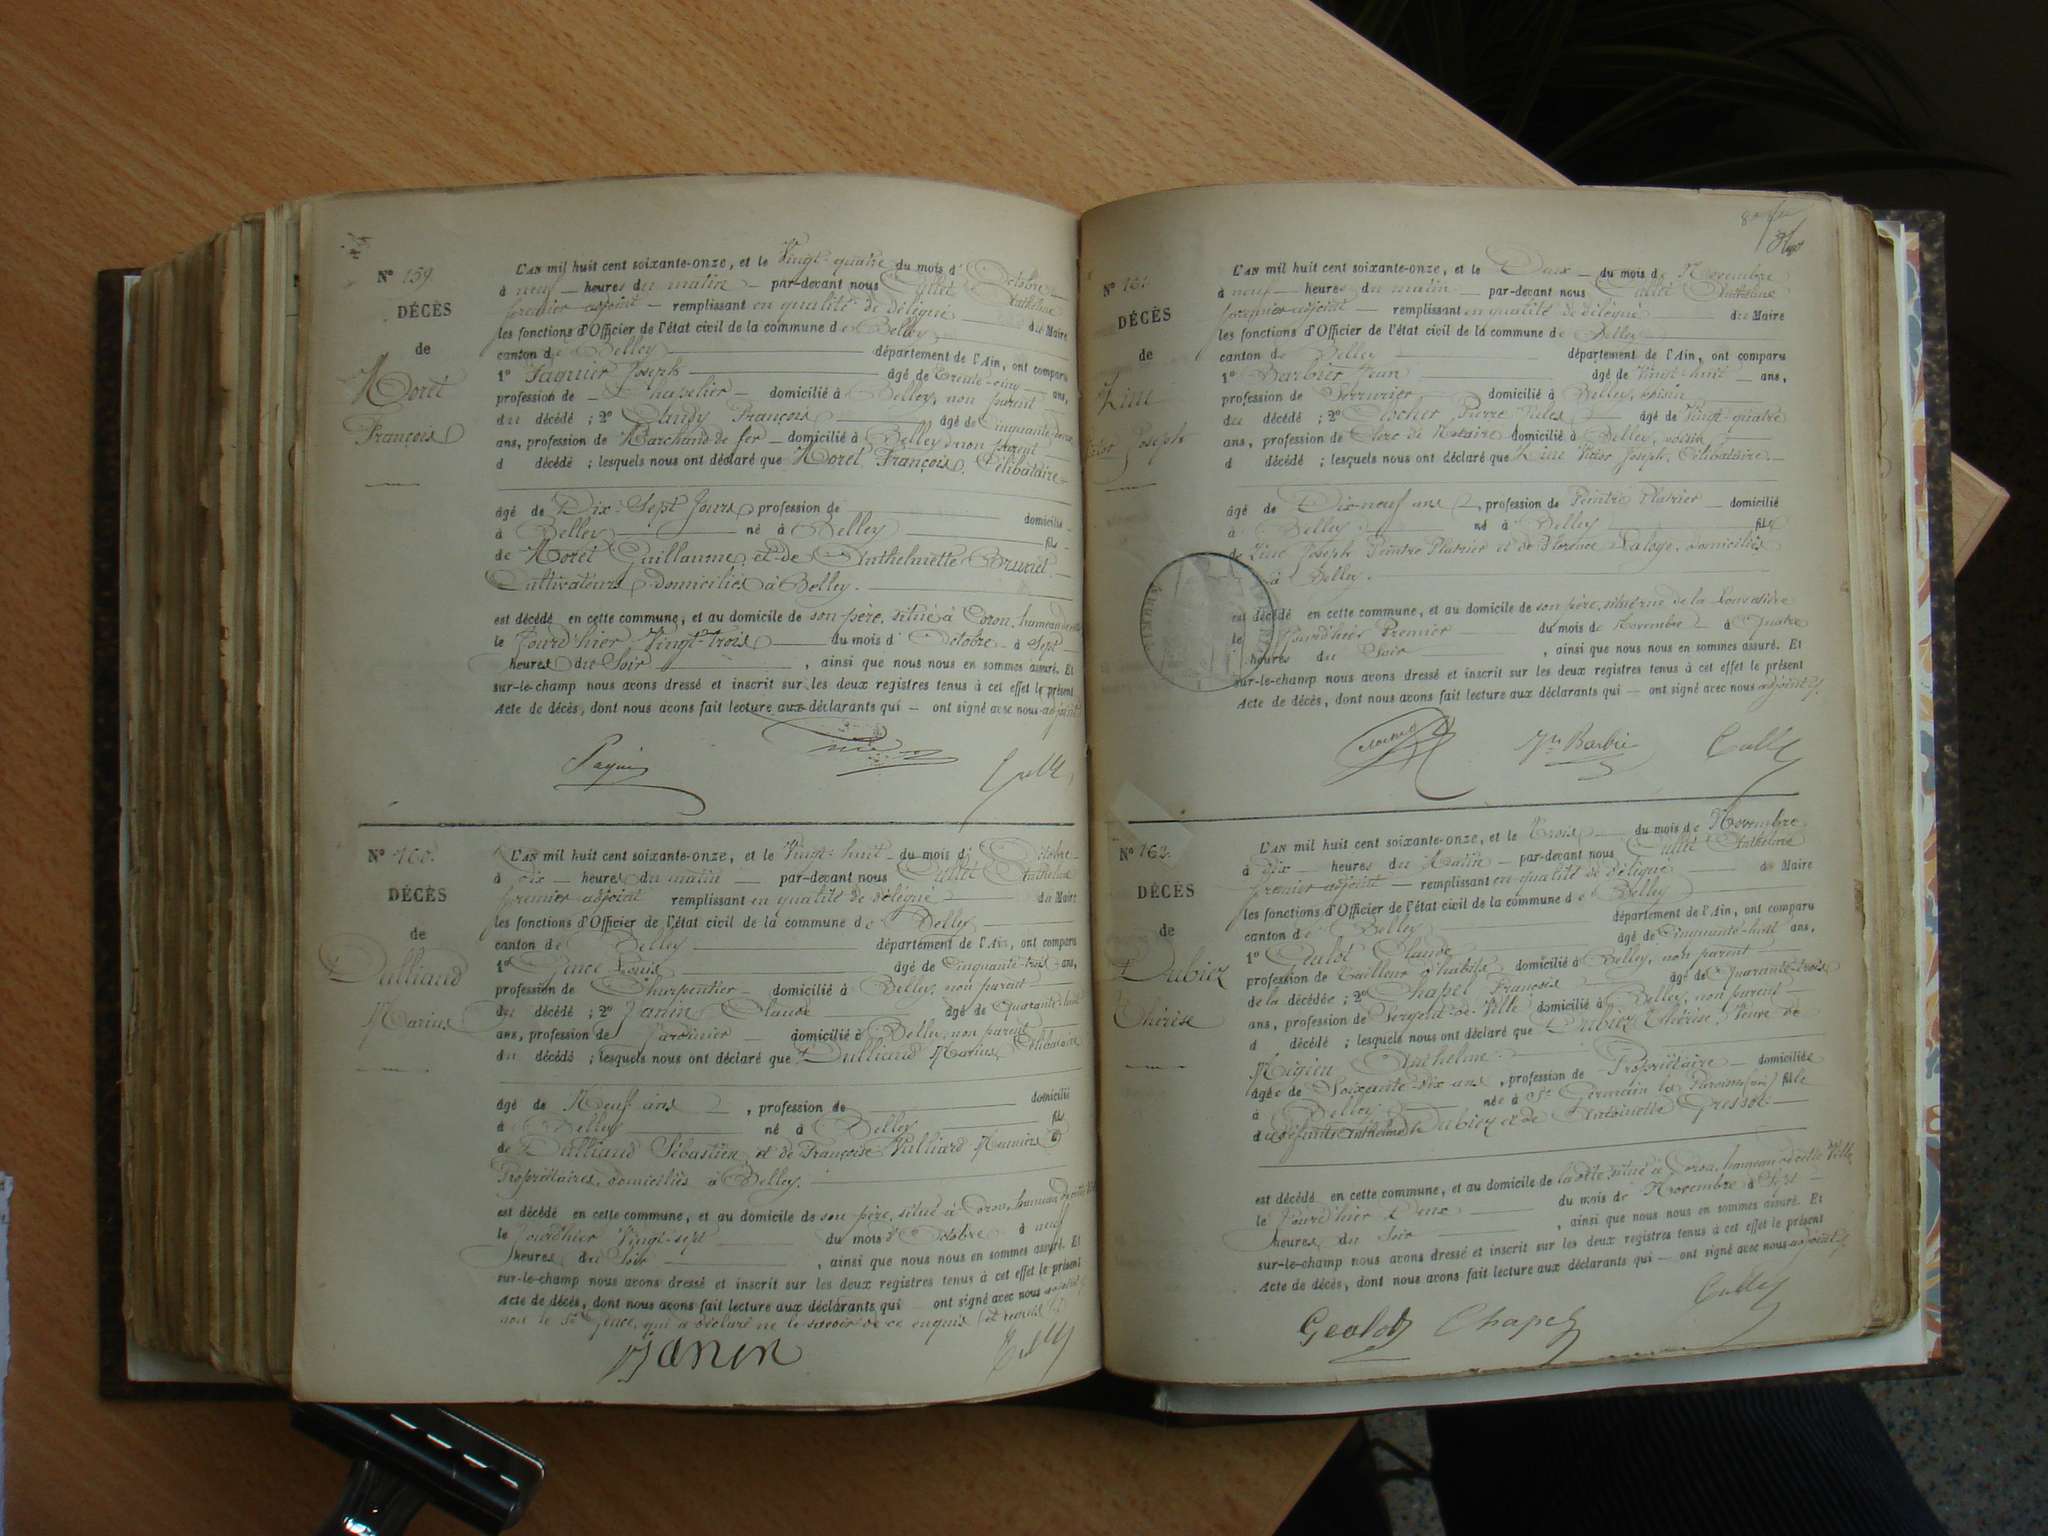 N° 159
DÉCÈS
de
Moret
François
L'AN mil huit cent soixante-onze, et le Vingt-quatre du mois d'Octobre
à neuf heures du matin par-devant nous Cullet Anthelme
premier adjoint remplissant en qualité de délégué du Maire
les fonctions d'Officier de l'état civil de la commune de Belley
canton de Belley département de l'Ain, ont comparu
1° Joseph âgé de trente-cinq ans,
profession de Chapelier domicilié à Belley, non parent
du décédé ; 2° François âgé de Cinquante-deux
ans, profession de Marchand de fer domicilié à Belley, non parent
d décédé ; lesquels nous ont déclaré que Moret François, Célibataire
âgé de Dix-Sept Jours profession de domicilié
à Belley né à Belley fils
de Moret Guillaume et de Anthelmette Brunet
Cultivateurs domiciliés à Belley.
est décédé en cette commune, et au domicile de son père, situé à Coron, hameau de
le Jourd'hier Vingt-trois du mois d'Octobre à Sept
heures du Soir, ainsi que nous nous en sommes assuré. Et
sur-le-champ nous avons dressé et inscrit sur les deux registres tenus à cet effet le présent
Acte de décès, dont nous avons fait lecture aux déclarants qui ont signé avec nous adjoint
N° 160.
DÉCÈS
de
Dulliand
Marius
L'AN mil huit cent soixante-onze, et le Vingt-huit du mois d'Octobre
à Dix heures du matin par-devant nous Cullet Anthelme
premier adjoint remplissant en qualité de délégué du Maire
les fonctions d'Officier de l'état civil de la commune de Belley
canton de Belley département de l'Ain, ont comparu
1° Gence Louis âgé de Cinquante-trois ans,
profession de Charpentier domicilié à Belley, non parent
du décédé ; 2° Janin Claude âgé de Quarante-huit
ans, profession de Jardinier domicilié à Belley, non parent
du décédé ; lesquels nous ont déclaré que Dulliand Marius, Célibataire
âgé de Neuf ans, profession de domicilié
à Belley né à Belley fils
de Dulliand Sébastien et de Françoise Vulliard
Propriétaires, domiciliés à Belley.
est décédé en cette commune, et au domicile de son père, situé à Coron, hameau de cette Ville
le Jourd'hier Vingt-sept du mois d'Octobre à neuf
heures du Soir, ainsi que nous nous en sommes assuré. Et
sur-le-champ nous avons dressé et inscrit sur les deux registres tenus à cet effet le présent
Acte de décès, dont nous avons fait lecture aux déclarants qui ont signé avec nous adjoint
non le Sr Gence, qui a déclaré ne le savoir de ce enquis et requis
Janin
N° 161
DÉCÈS
de
Victor Joseph
L'AN mil huit cent soixante-onze, et le Deux du mois de Novembre
à neuf heures du matin par-devant nous Cullet Anthelme
premier adjoint remplissant en qualité de délégué du Maire
les fonctions d'Officier de l'état civil de la commune de Belley
canton de Belley département de l'Ain, ont comparu
1° Barbier Jean âgé de Vingt-huit ans,
profession de Serrurier domicilié à Belley, voisin
du décédé ; 2° Pierre Jules âgé de Vingt-quatre
ans, profession de Clerc de Notaire domicilié à Belley, voisin
d décédé ; lesquels nous ont déclaré que Victor Joseph, Célibataire.
âgé de Dix-neuf ans, profession de Peintre Platrier domicilié
à Belley né à Belley fils
de Joseph Peintre Platrier et de Florence domiciliés
à Belley.
est décédé en cette commune, et au domicile de son père, situé rue de la
le Jourd'hier Premier du mois de Novembre à Quatre
heures du Soir, ainsi que nous nous en sommes assuré. Et
sur-le-champ nous avons dressé et inscrit sur les deux registres tenus à cet effet le présent
Acte de décès, dont nous avons fait lecture aux déclarants qui ont signé avec nous adjoint
N° 162.
DÉCÈS
de
Dubiez
Thérèse
L'AN mil huit cent soixante-onze, et le Trois du mois de Novembre
à Dix heures du Matin par-devant nous Cullet Anthelme
premier adjoint remplissant en qualité de délégué du Maire
les fonctions d'Officier de l'état civil de la commune de Belley
canton de Belley département de l'Ain, ont comparu
1° Gealot Claude âgé de Cinquante-huit ans,
profession de Tailleur d'habits domicilié à Belley, non parent
de la décédée ; 2° Chapel François âgé de Quarante-trois
ans, profession de Sergent-de-Ville domicilié à Belley, non parent
d décédé ; lesquels nous ont déclaré que Dubiez Thérèse, Veuve de
Migien Anthelme
âgée de Soixante-dix ans, profession de Propriétaire domiciliée
à Belley née à St Germain les Paroisses (Ain) fille
du défunt Anthelme Dubiez et de Antoinette
est décédé en cette commune, et au domicile de situé à Coron, hameau de cette Ville
le Jourd'hier Deux du mois de Novembre à Sept
heures du Soir, ainsi que nous nous en sommes assuré. Et
sur-le-champ nous avons dressé et inscrit sur les deux registres tenus à cet effet le présent
Acte de décès, dont nous avons fait lecture aux déclarants qui ont signé avec nous adjoint
Gealot Chapel